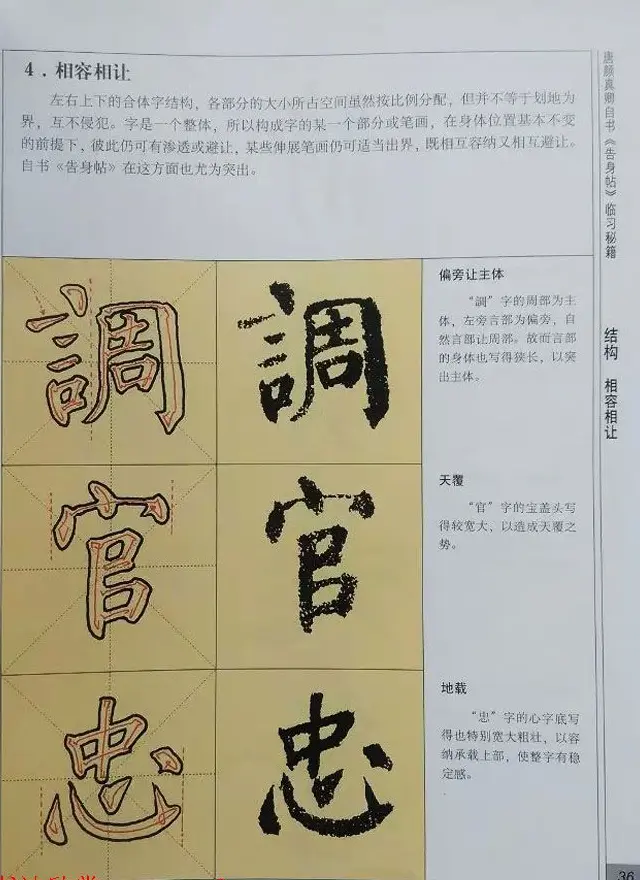 4．相容相让
左右上下的合体字结构，各部分的大小所占空间虽然按比例分配，但并不等于划地为
界，互不侵犯。字是一个整体，所以构成字的某一个部分或笔画，在身体位置基本不变
的前提下，彼此仍可有渗透或避让，某些伸展笔画仍可适当出界，既相互容纳又相互避让。
自书《告身帖》在这方面也尤为突出。
調 調
偏旁让主体
“調”字的周部为主
体，左旁言部为偏旁，自
然言部让周部。故而言部
的身体也写得狭长，以突
出主体。
官 官
天覆
“官”字的宝盖头写
得较宽大，以造成天覆之
势。
忠 忠
地载
“忠”字的心字底写
得也特别宽大粗壮，以容
纳承载上部，使整字有稳
定感。
唐颜真卿自书《告身帖》临习秘籍
结构 相容相让
36